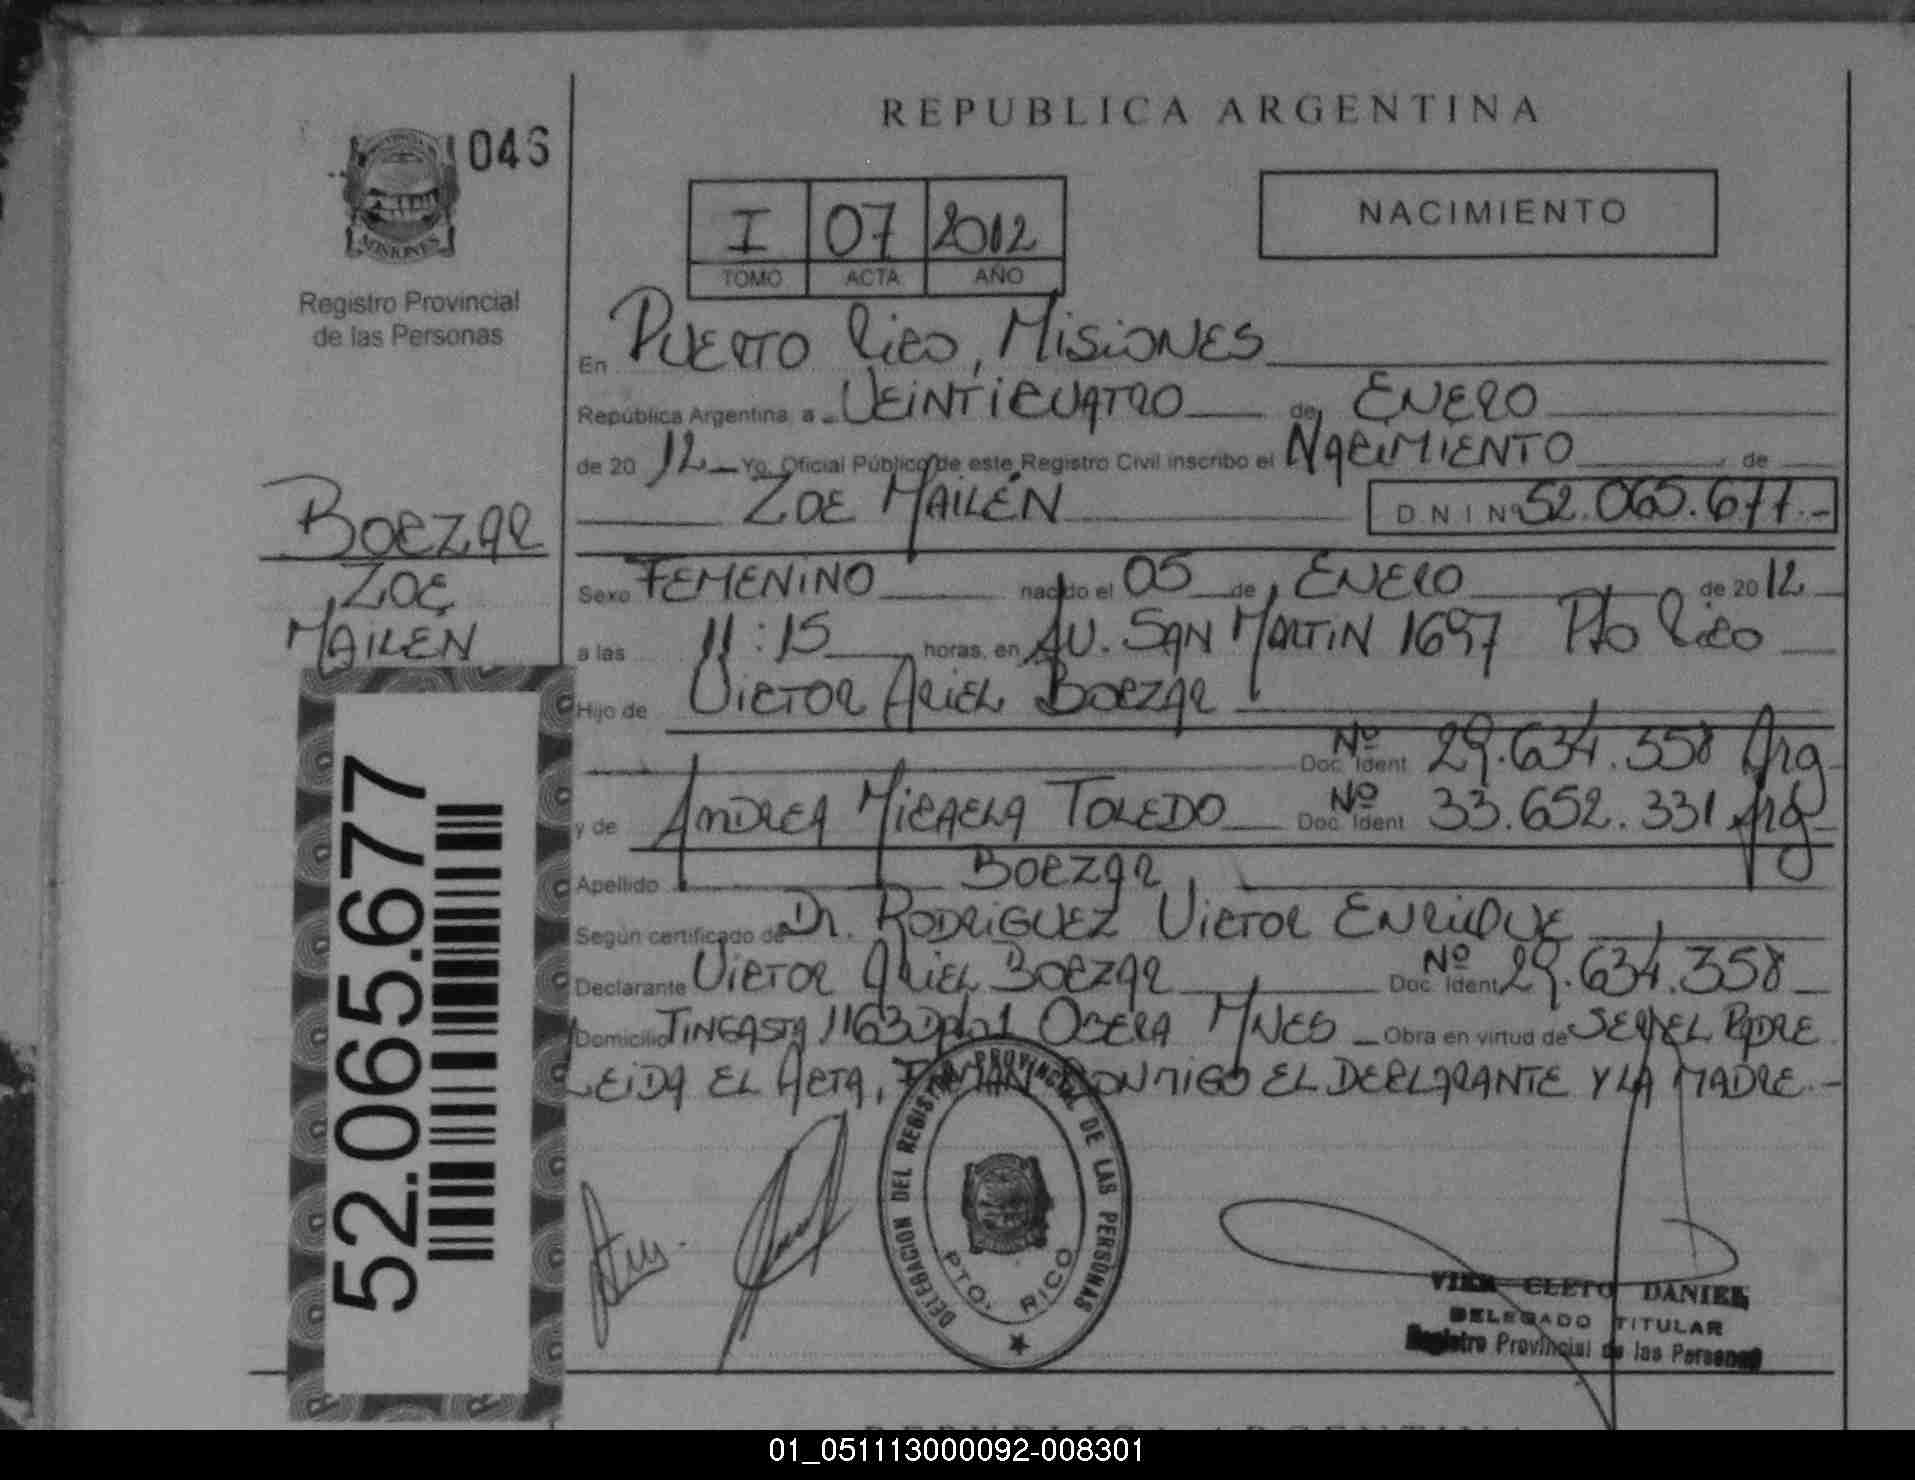 REPUBLICA ARGENTINA
046
MISIONES
Registro Provincial
de las Personas
I 07 2012
TOMO ACTA AÑO
NACIMIENTO
En PUERTO RICO, MISIONES
República Argentina, a VEINTICUATRO de ENERO
de 20 12 Yo, Oficial Público de este Registro Civil inscribo el NACIMIENTO de
ZOE MAILÉN D N I Nº 52.065.677.-
BOEZAR
ZOE
MAILEN
Sexo FEMENINO nacido el 05 de ENERO de 20 12
a las 11:15 horas, en AV. SAN MARTIN 1697 Pto Rico
Hijo de VICTOR ARIEL BOEZAR
Nº Doc. Ident 29.634.358 Arg
y de ANDREA MICAELA TOLEDO Nº Doc. Ident 33.652.331 Arg
Apellido BOEZAR
Según certificado de Dr. RODRIGUEZ VICTOR ENRIQUE
Declarante VICTOR ARIEL BOEZAR Nº Doc. Ident. 29.634.358
Domicilio 1163 OBERA MNES Obra en virtud de SER EL PADRE
LEIDA EL ACTA, FIRMAN CONMIGO EL DECLARANTE Y LA MADRE.-
52.065.677
DELEGACION DEL REGISTRO PROVINCIAL DE LAS PERSONAS
PTO. RICO
CLETO DANIEL
DELEGADO TITULAR
Registro Provincial de las Personas
01_051113000092-008301